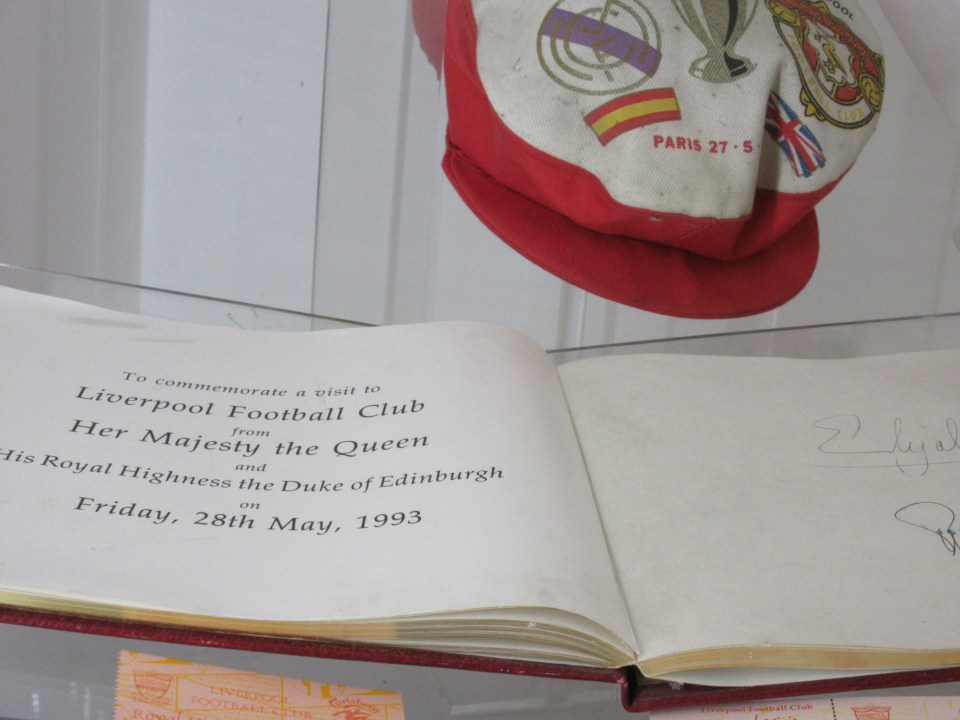 POOL
CLUB
PARIS 27·5·
To commemorate a visit to
Liverpool Football Club
from
Her Majesty the Queen
and
His Royal Highness the Duke of Edinburgh
on
Friday, 28th May, 1993
LIVERPOOL
FOOTBALL CLUB
Carlsberg
Liverpool Football Club